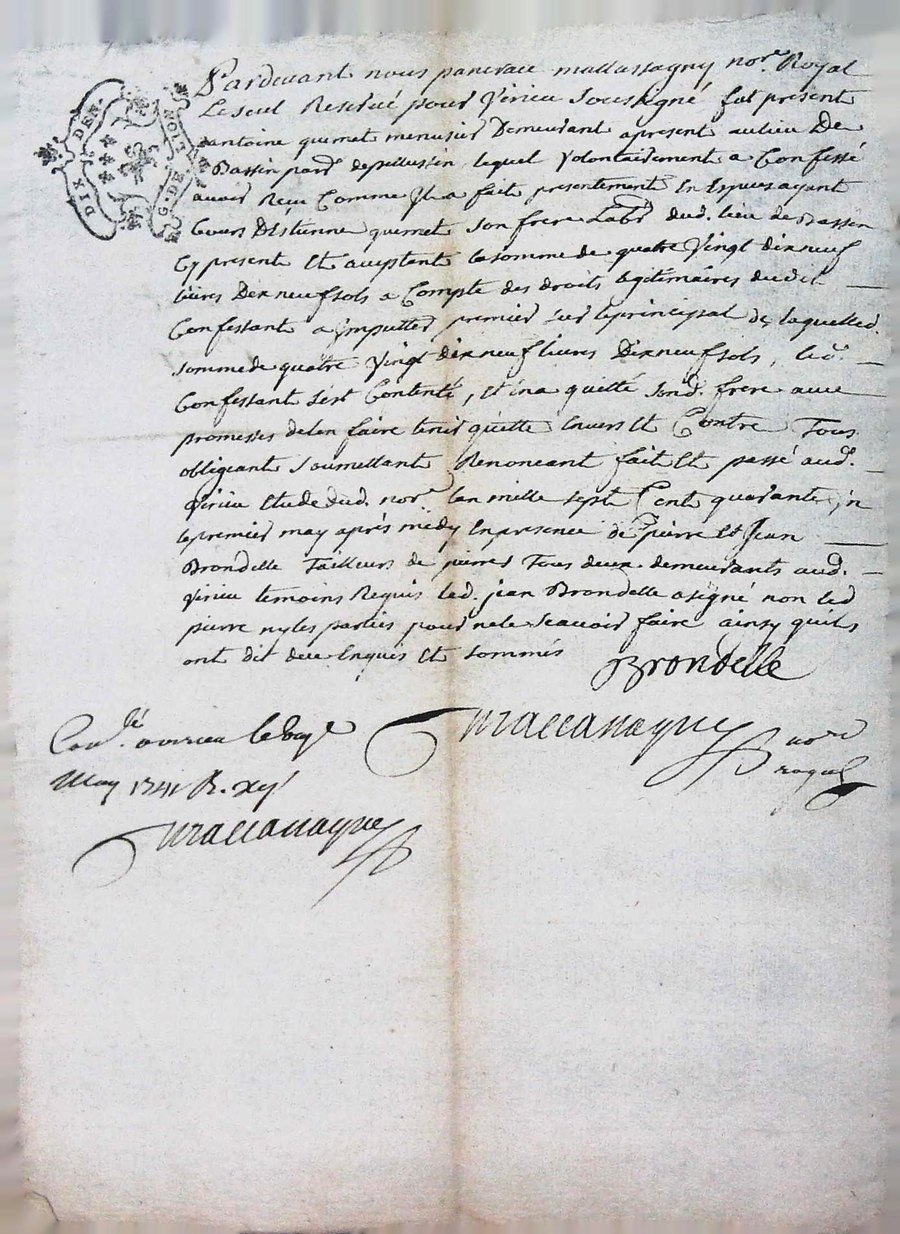 DIX. DEN.
G. DE LION
Pardevant nous pancrace mallassagny nore. Royal
Le seul Reservé pour Virieu soussigné fut present
antoine quemet menusier Demeurant apresent au lieu De
Bassin parse. depellussin lequel volontairement a Confessé
avoir Reçu Comme Il a fait presentement En Espuces ayant
Cours D'Estienne quemet son frere Labr. dud. lieu de Bassin
Cy present Et aceptant la somme de quatre Vingt dix neuf
livres Dix neuf sols a Compte des droits legitimaires dudit
Confessant a jmputter premier sur le principal de laquelled.
somme de quatre Vingt dix neuf livres Dix neuf sols, led.
Confessant s'est Contenté, Et ena quitté sond. frere avec
promesses de len faire tenir quitte Envers Et Contre Tous
obligeant soumettant Renonceant fait Et passé aud.
Virieu Etude dud. nore. lan mille sept Cent quarante un
le premier may après midy En presence de pierre Et Jean
Brondelle Tailleurs de pierres Tous deux demeurants aud.
Virieu temoins Requis led. jean Brondelle a signé non led
pierre ny les parties pour ne le scavoir faire ainsy quils
ont dit de ce Enquis Et sommés
Brondelle
nore
royal
Conlé. a virieu le
May 1741 R. xij s